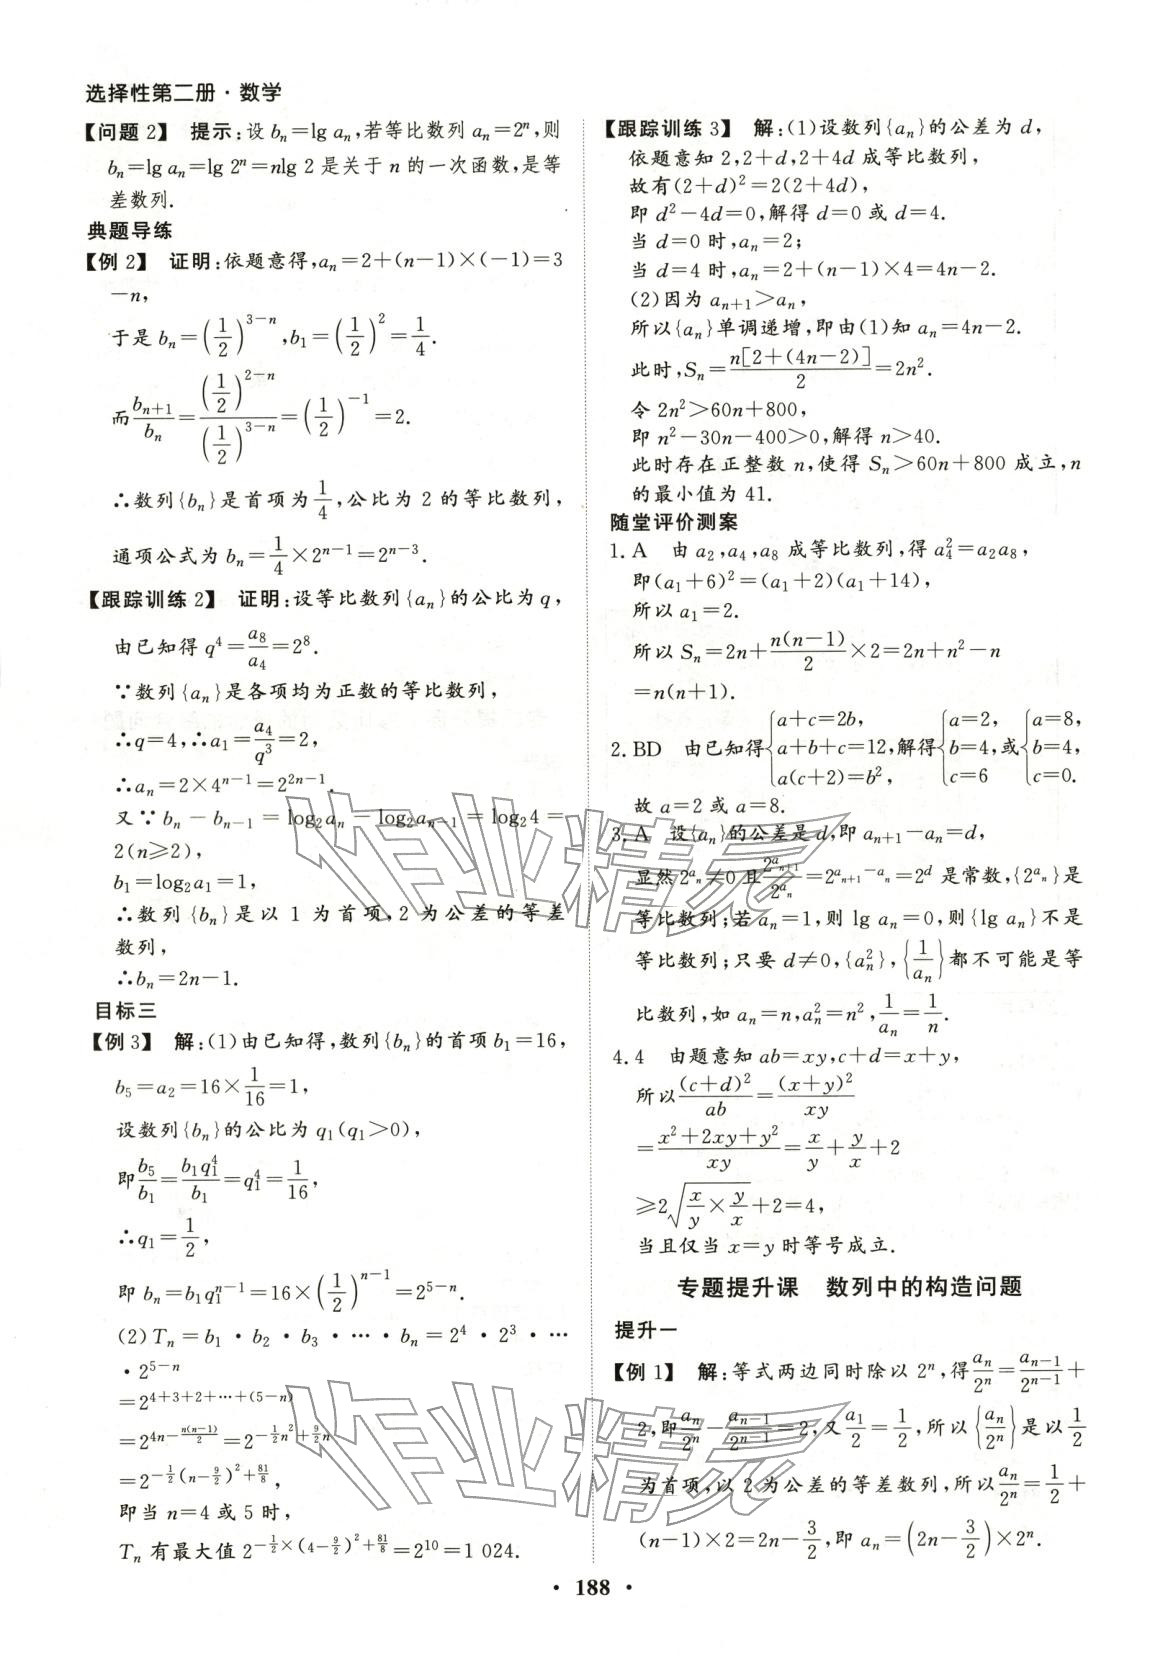 选择性第二册·数学
【问题2】 提示:设 bₙ=lg aₙ,若等比数列 aₙ=2ⁿ,则
bₙ=lg aₙ=lg 2ⁿ=nlg 2 是关于 n 的一次函数,是等
差数列.
典题导练
【例2】 证明:依题意得,aₙ=2+(n-1)×(-1)=3
-n,
于是 bₙ=(1/2)^(3-n),b₁=(1/2)²=1/4.
而 bₙ₊₁/bₙ=(1/2)^(2-n)/(1/2)^(3-n)=(1/2)^(-1)=2.
∴数列{bₙ}是首项为1/4,公比为 2 的等比数列,
通项公式为 bₙ=1/4×2^(n-1)=2^(n-3).
【跟踪训练2】 证明:设等比数列{aₙ}的公比为 q,
由已知得 q⁴=a₈/a₄=2⁸.
∵数列{aₙ}是各项均为正数的等比数列,
∴q=4,∴a₁=a₄/q³=2,
∴aₙ=2×4^(n-1)=2^(2n-1).
又∵bₙ-bₙ₋₁=log₂aₙ-log₂aₙ₋₁=log₂4=
2(n≥2),
b₁=log₂a₁=1,
∴数列{bₙ}是以 1 为首项,2 为公差的等差
数列,
∴bₙ=2n-1.
目标三
【例3】 解:(1)由已知得,数列{bₙ}的首项 b₁=16,
b₅=a₂=16×1/16=1,
设数列{bₙ}的公比为 q₁(q₁>0),
即 b₅/b₁=b₁q₁⁴/b₁=q₁⁴=1/16,
∴q₁=1/2,
即 bₙ=b₁q₁^(n-1)=16×(1/2)^(n-1)=2^(5-n).
(2)Tₙ=b₁·b₂·b₃·…·bₙ=2⁴·2³·…
·2^(5-n)
=2^(4+3+2+…+(5-n))
=2^(4n-n(n-1)/2)=2^(-1/2n²+9/2n)
=2^(-1/2(n-9/2)²+81/8),
即当 n=4 或 5 时,
Tₙ有最大值 2^(-1/2×(4-9/2)²+81/8)=2¹⁰=1 024.
【跟踪训练3】 解:(1)设数列{aₙ}的公差为 d,
依题意知 2,2+d,2+4d 成等比数列,
故有(2+d)²=2(2+4d),
即 d²-4d=0,解得 d=0 或 d=4.
当 d=0 时,aₙ=2;
当 d=4 时,aₙ=2+(n-1)×4=4n-2.
(2)因为 aₙ₊₁>aₙ,
所以{aₙ}单调递增,即由(1)知 aₙ=4n-2.
此时,Sₙ=n[2+(4n-2)]/2=2n².
令 2n²>60n+800,
即 n²-30n-400>0,解得 n>40.
此时存在正整数 n,使得 Sₙ>60n+800 成立,n
的最小值为 41.
随堂评价测案
1. A 由 a₂,a₄,a₈ 成等比数列,得 a₄²=a₂a₈,
即(a₁+6)²=(a₁+2)(a₁+14),
所以 a₁=2.
所以 Sₙ=2n+n(n-1)/2×2=2n+n²-n
=n(n+1).
2. BD 由已知得{a+c=2b, a+b+c=12, a(c+2)=b²,解得{a=2, b=4, c=6 或{a=8, b=4, c=0.
故 a=2 或 a=8.
3. A 设{aₙ}的公差是 d,即 aₙ₊₁-aₙ=d,
显然 2^(aₙ)≠0 且 2^(aₙ₊₁)/2^(aₙ)=2^(aₙ₊₁-aₙ)=2^d 是常数,{2^(aₙ)}是
等比数列;若 aₙ=1,则 lg aₙ=0,则{lg aₙ}不是
等比数列;只要 d≠0,{aₙ²},{1/aₙ}都不可能是等
比数列,如 aₙ=n,aₙ²=n²,1/aₙ=1/n.
4. 4 由题意知 ab=xy,c+d=x+y,
所以(c+d)²/ab=(x+y)²/xy
=(x²+2xy+y²)/xy=x/y+y/x+2
≥2√(x/y×y/x)+2=4,
当且仅当 x=y 时等号成立.
专题提升课 数列中的构造问题
提升一
【例1】 解:等式两边同时除以 2ⁿ,得 aₙ/2ⁿ=aₙ₋₁/2^(n-1)+
2,即 aₙ/2ⁿ-aₙ₋₁/2^(n-1)=2,又 a₁/2=1/2,所以{aₙ/2ⁿ}是以1/2
为首项,以 2 为公差的等差数列,所以 aₙ/2ⁿ=1/2+
(n-1)×2=2n-3/2,即 aₙ=(2n-3/2)×2ⁿ.
·188·
作业精灵
作业精灵